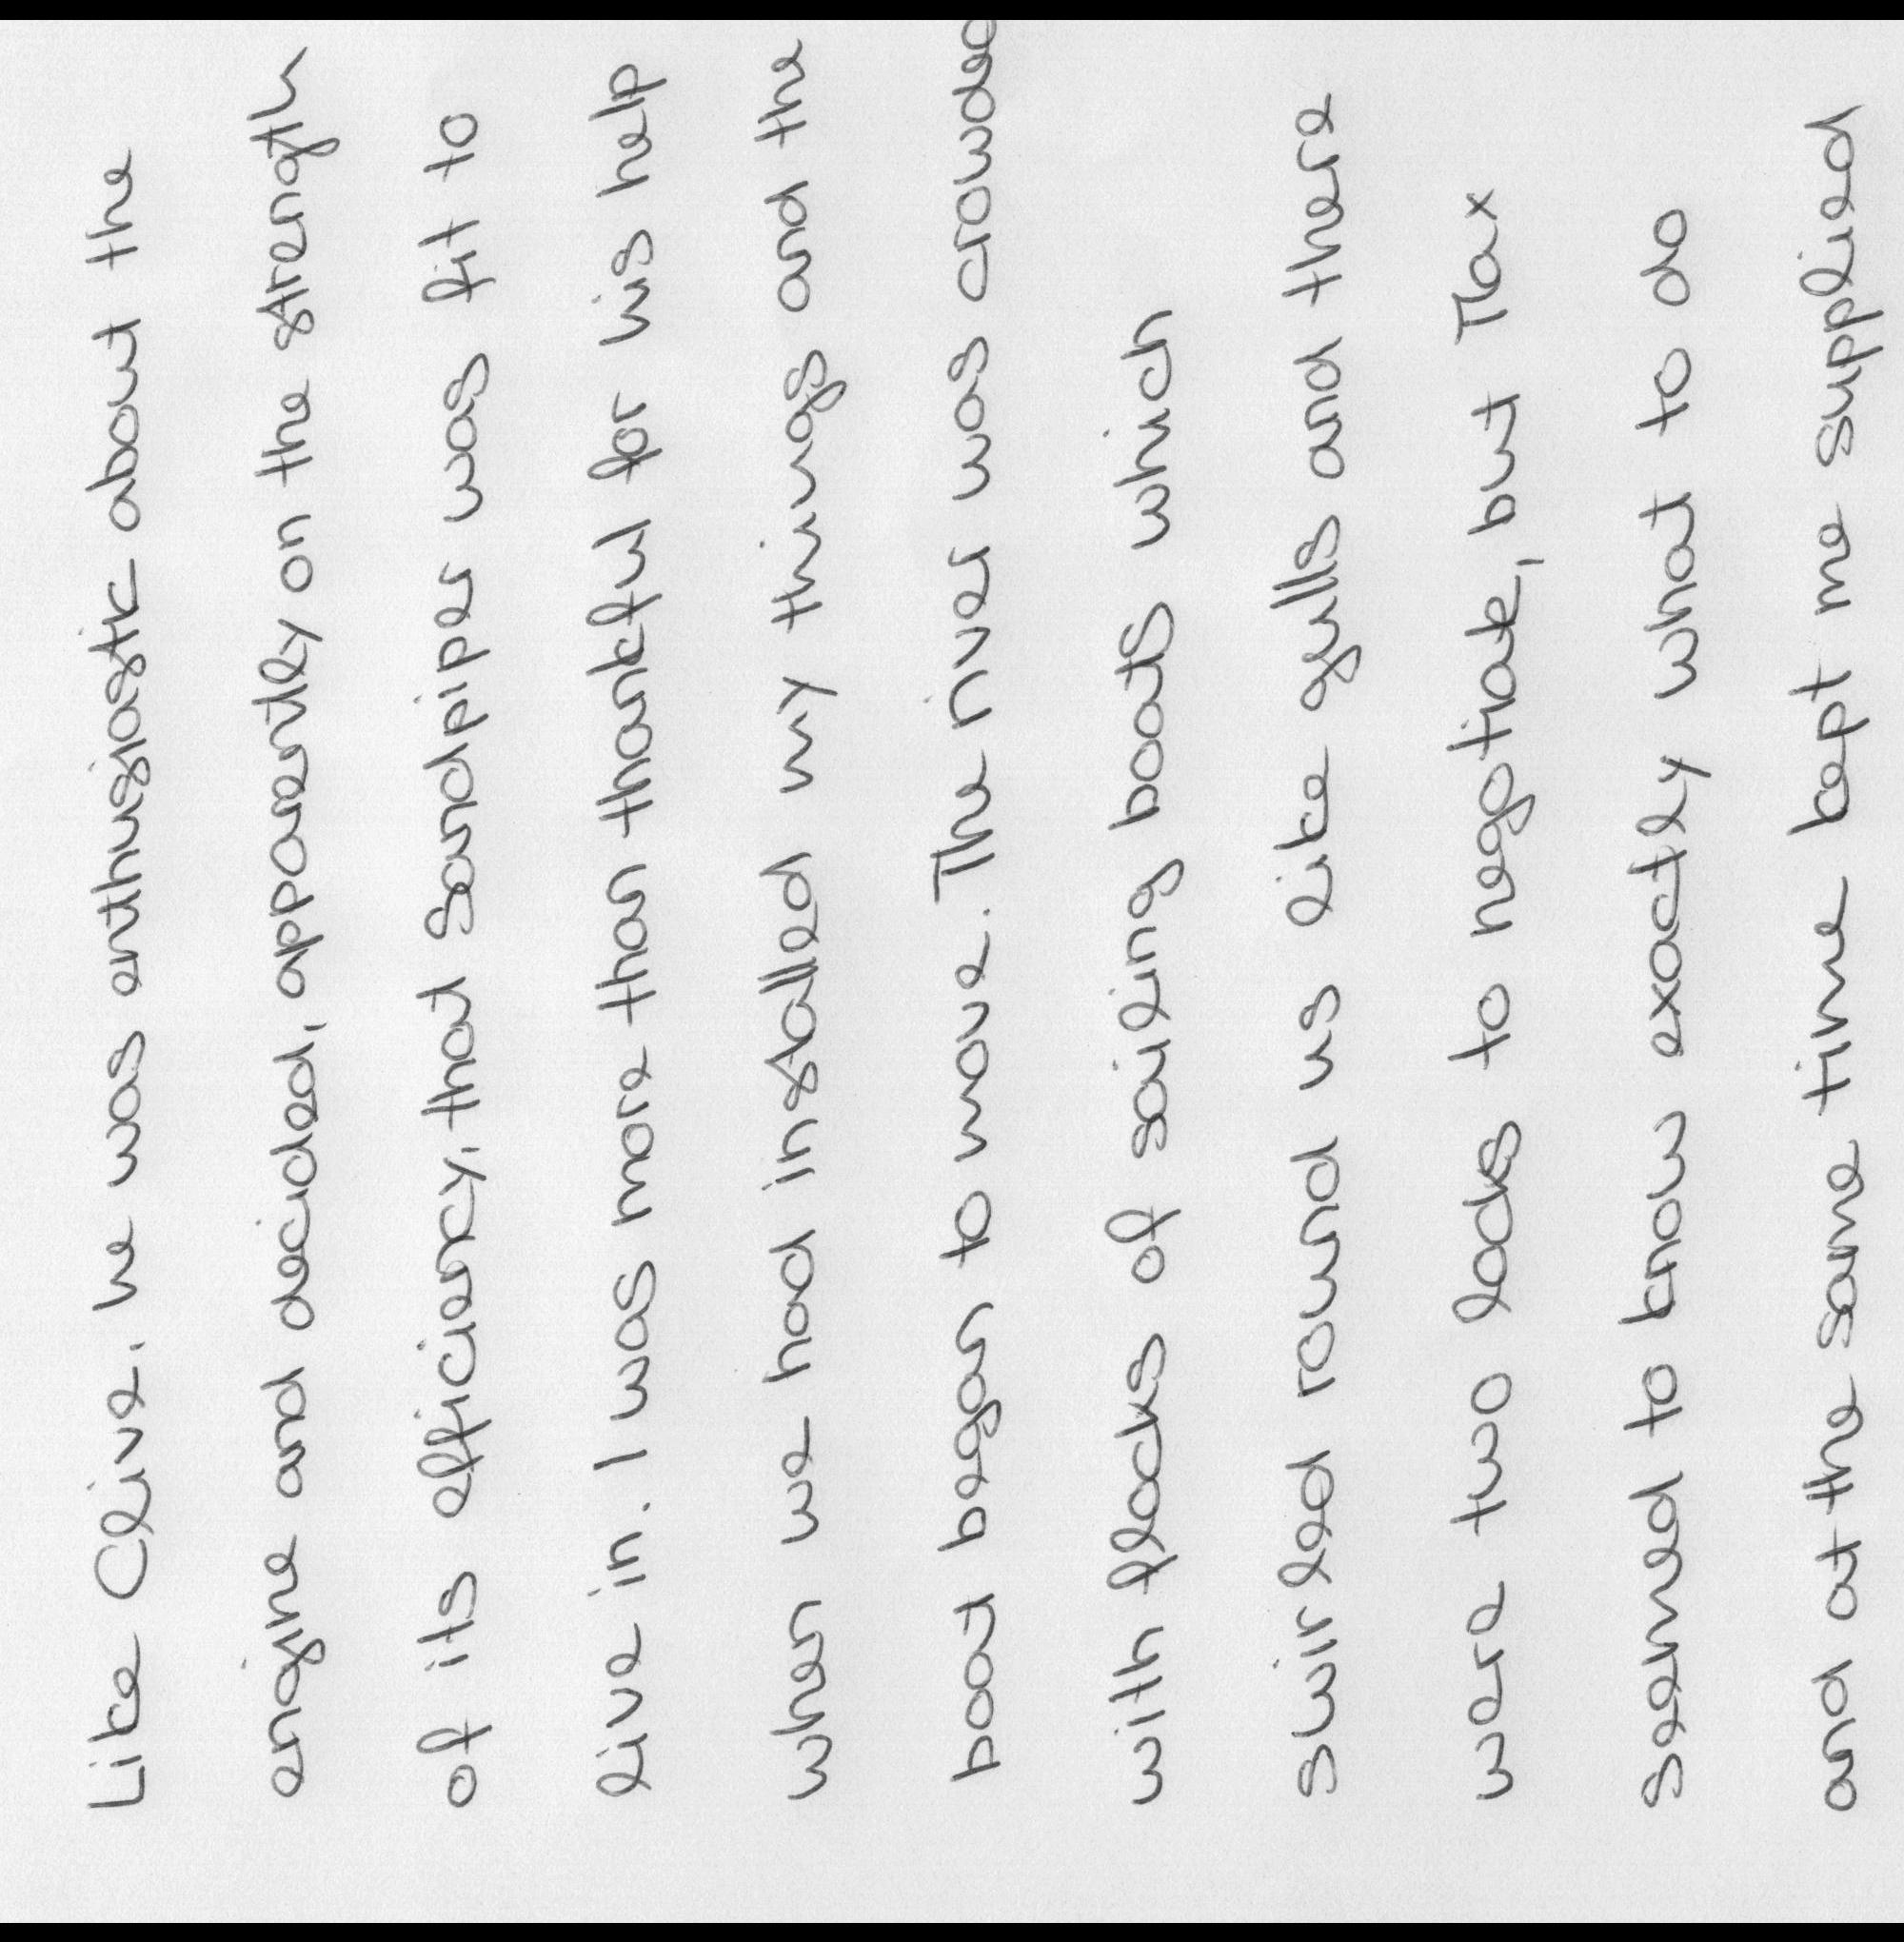 Like Clive, he was enthusiastic about the
engine and decided, apparently on the strength
of its efficiency, that Sandpiper was fit to
live in. I was more than thankful for his help
when we had installed my things and the
boat began to move. The river was crowded
with flocks of sailing boats which
swirled round us like gulls and there
were two locks to negotiate, but Tlax
seemed to know exactly what to do
and at the same time kept me supplied